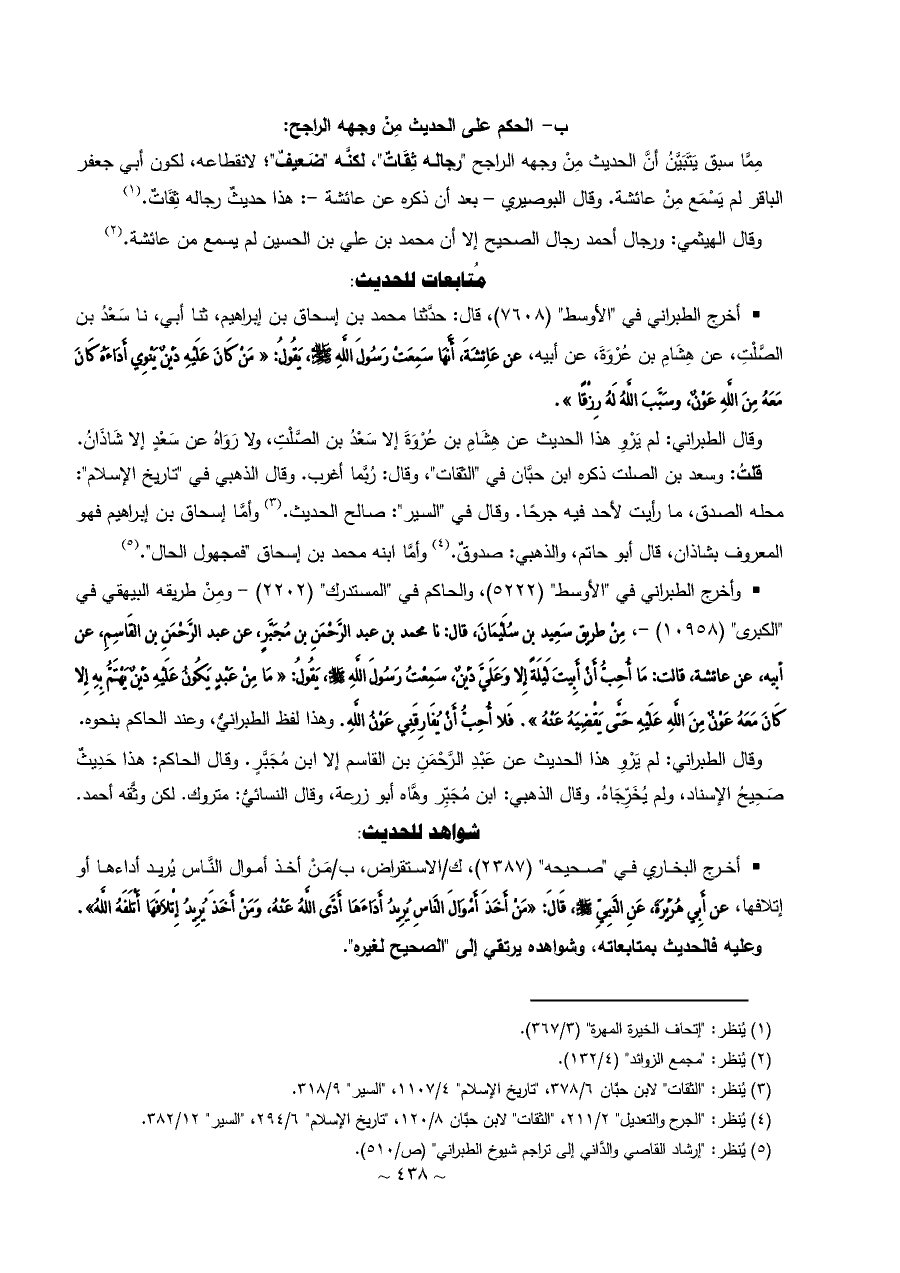 ب- الحكم على الحديث مِنْ وجهه الراجح:
مِمَّا سبق يَتَبَيَّنُ أنَّ الحديث مِنْ وجهه الراجح "رجاله ثِقَاتٌ"، لكنَّه "ضَعيفٌ"؛ لانقطاعه، لكون أبي جعفر
الباقر لم يَسْمَع مِنْ عائشة. وقال البوصيري – بعد أن ذكره عن عائشة –: هذا حديثٌ رجاله ثِقَاتٌ.(١)
وقال الهيثمي: ورجال أحمد رجال الصحيح إلا أن محمد بن علي بن الحسين لم يسمع من عائشة.(٢)
مُتابعات للحديث:
▪ أخرج الطبراني في "الأوسط" (٧٦٠٨)، قال: حدَّثنا محمد بن إسحاق بن إبراهيم، ثنا أبي، نا سَعْدُ بن
الصَّلْتِ، عن هِشَامِ بن عُرْوَةَ، عن أبيه، عن عَائِشَةَ، أَنَّهَا سَمِعَتْ رَسُولَ اللَّهِ ﷺ، يَقُولُ: « مَنْ كَانَ عَلَيْهِ دَيْنٌ يَنْوِي أَدَاءَهُ كَانَ
مَعَهُ مِنَ اللَّهِ عَوْنٌ، وسَبَّبَ اللَّهُ لَهُ رِزْقًا ».
وقال الطبراني: لم يَرْوِ هذا الحديث عن هِشَامِ بن عُرْوَةَ إلا سَعْدُ بن الصَّلْتِ، ولا رَوَاهُ عن سَعْدٍ إلا شَاذَانُ.
قلتُ: وسعد بن الصلت ذكره ابن حبَّان في "الثقات"، وقال: رُبَّما أغرب. وقال الذهبي في "تاريخ الإسلام":
محله الصدق، ما رأيت لأحد فيه جرحًا. وقال في "السير": صالح الحديث.(٣) وأمَّا إسحاق بن إبراهيم فهو
المعروف بشاذان، قال أبو حاتم، والذهبي: صدوقٌ.(٤) وأمَّا ابنه محمد بن إسحاق "فمجهول الحال".(٥)
▪ وأخرج الطبراني في "الأوسط" (٥٢٢٢)، والحاكم في "المستدرك" (٢٢٠٢) – ومِنْ طريقه البيهقي في
"الكبرى" (١٠٩٥٨) –، مِنْ طريق سَعِيد بن سُلَيْمَانَ، قال: نا محمد بن عبد الرَّحْمَنِ بن مُجَبَّرٍ، عن عبد الرَّحْمَنِ بن القَاسِمِ، عن
أبيه، عن عائشة، قالت: مَا أُحِبُّ أَنْ أَبِيتَ لَيْلَةً إلا وَعَلَيَّ دَيْنٌ، سَمِعْتُ رَسُولَ اللَّهِ ﷺ، يَقُولُ: « مَا مِنْ عَبْدٍ يَكُونُ عَلَيْهِ دَيْنٌ يَهْتَمُّ بِهِ إلا
كَانَ مَعَهُ عَوْنٌ مِنَ اللَّهِ عَلَيْهِ حَتَّى يَقْضِيَهُ عَنْهُ ». فَلا أُحِبُّ أَنْ يُفَارِقَنِي عَوْنُ اللَّهِ. وهذا لفظ الطبرانيُّ، وعند الحاكم بنحوه.
وقال الطبراني: لم يَرْوِ هذا الحديث عن عَبْدِ الرَّحْمَنِ بن القاسم إلا ابن مُجَبَّرٍ. وقال الحاكم: هذا حَدِيثٌ
صَحِيحُ الإسناد، ولم يُخَرِّجَاهُ. وقال الذهبي: ابن مُجَبَّرٍ وهَّاه أبو زرعة، وقال النسائيُّ: متروك. لكن وثَّقه أحمد.
شواهد للحديث:
▪ أخرج البخاري في "صحيحه" (٢٣٨٧)، ك/الاستقراض، ب/مَنْ أخذ أموال النَّاس يُريد أداءها أو
إتلافها، عن أَبِي هُرَيْرَةَ، عَنِ النَّبِيِّ ﷺ، قَالَ: «مَنْ أَخَذَ أَمْوَالَ النَّاسِ يُرِيدُ أَدَاءَهَا أَدَّى اللَّهُ عَنْهُ، وَمَنْ أَخَذَ يُرِيدُ إِتْلاَفَهَا أَتْلَفَهُ اللَّهُ».
وعليه فالحديث بمتابعاته، وشواهده يرتقي إلى "الصحيح لغيره".
(١) يُنظر: "إتحاف الخيرة المهرة" (٣٦٧/٣).
(٢) يُنظر: "مجمع الزوائد" (١٣٢/٤).
(٣) يُنظر: "الثقات" لابن حبَّان ٣٧٨/٦، "تاريخ الإسلام" ١١٠٧/٤، "السير" ٣١٨/٩.
(٤) يُنظر: "الجرح والتعديل" ٢١١/٢، "الثقات" لابن حبَّان ١٢٠/٨، "تاريخ الإسلام" ٢٩٤/٦، "السير" ٣٨٢/١٢.
(٥) يُنظر: "إرشاد القاصي والدَّاني إلى تراجم شيوخ الطبراني" (ص/٥١٠).
~ ٤٣٨ ~